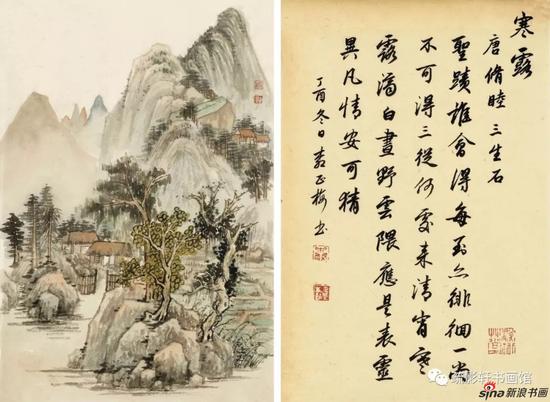 寒露
唐脩睦 三生石
聖蹟誰會得每到亦徘徊一尚
不可得三從何處来清宵寒
露滴白晝野雲隈應是表靈
異凡情安可猜
丁酉冬日正梅书
疏影轩书画馆
sina新浪书画